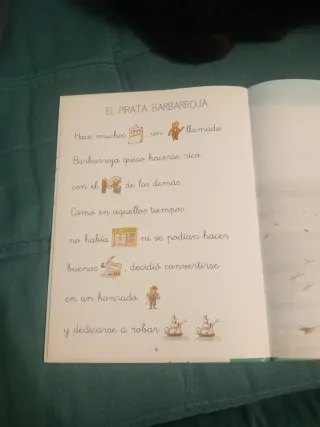 EL PIRATA BARBARROJA
Hace muchos un llamado
Barbarroja quiso hacerse rico
con el de los demás.
Como en aquellos tiempos
no había ni se podían hacer
buenos , decidió convertirse
en un honrado
y dedicarse a robar
6